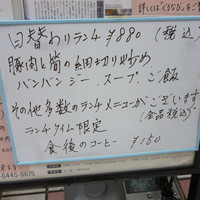 詳しくは「ぐるなび」をご
日替わりランチ ¥880 (税込)
豚肉と筍の細切り炒め
バンバンジー、スープ、ご飯
その他多数のランチメニューがございます
(全品税込)
ランチタイム限定
食後のコーヒー ¥150
6445-6675